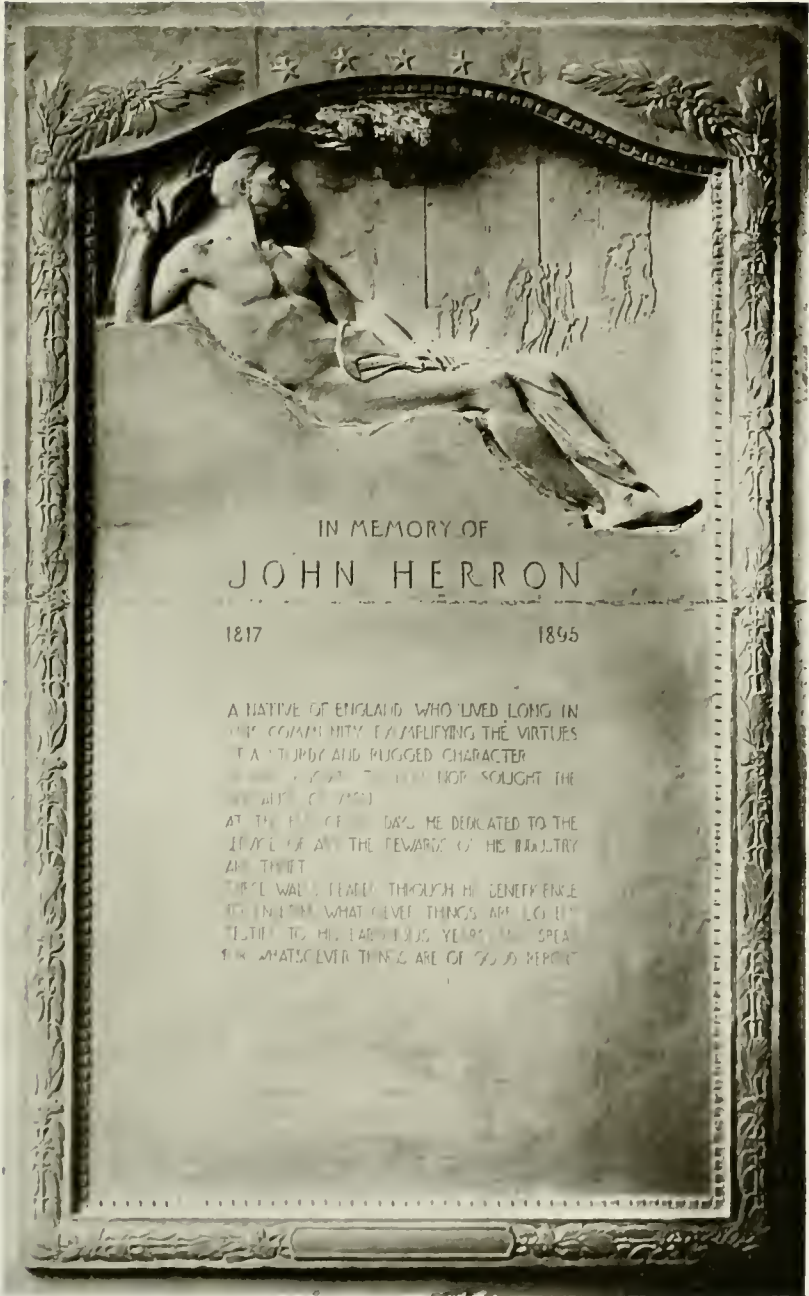 IN MEMORY OF
JOHN HERRON
1817 1895
A NATIVE OF ENGLAND WHO LIVED LONG IN
THIS COMMUNITY EXEMPLIFYING THE VIRTUES
OF A STURDY AND RUGGED CHARACTER
NOR SOUGHT THE
OF
AT THE OF DAYS HE DEDICATED TO THE
SERVICE OF ART THE REWARDS OF HIS INDUSTRY
AND THRIFT
THESE WALLS REARED THROUGH HIS BENEFICENCE
TO WHATSOEVER THINGS ARE LOVELY
TESTIFY TO HIS LABORIOUS YEARS AND SPEAK
FOR WHATSOEVER THINGS ARE OF GOOD REPORT